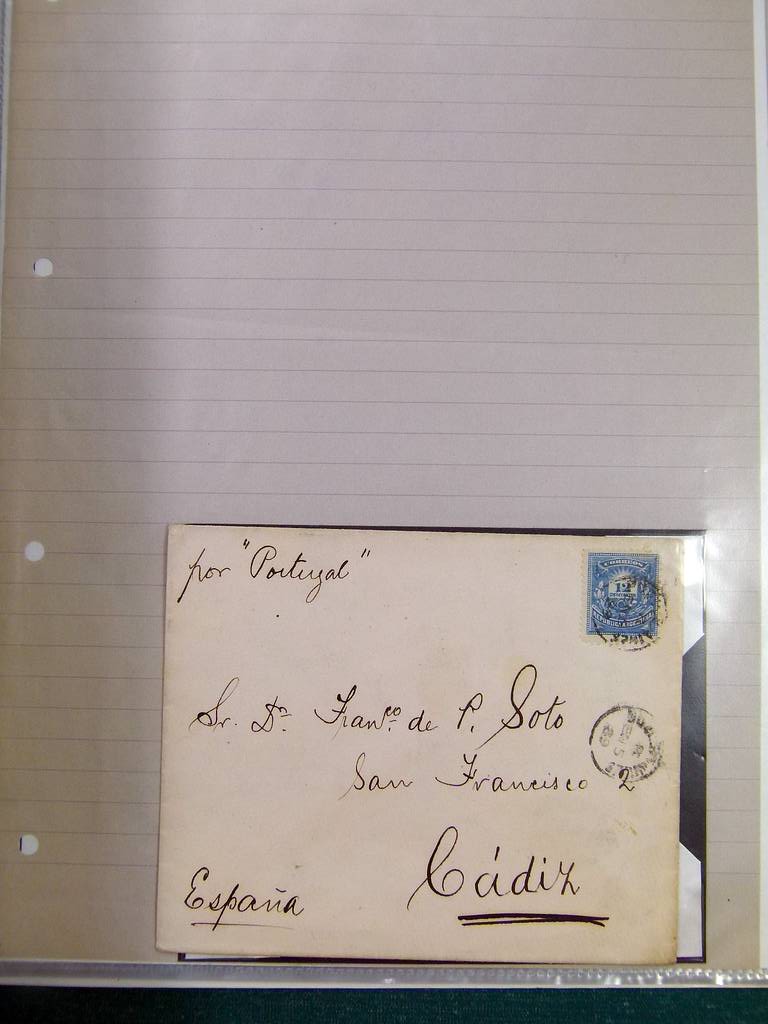 por "Portugal"
CORREOS
12
REPUBLICA ARGENTINA
Sr. Dr. Franco. de P. Soto
San Francisco 2
Cádiz
España